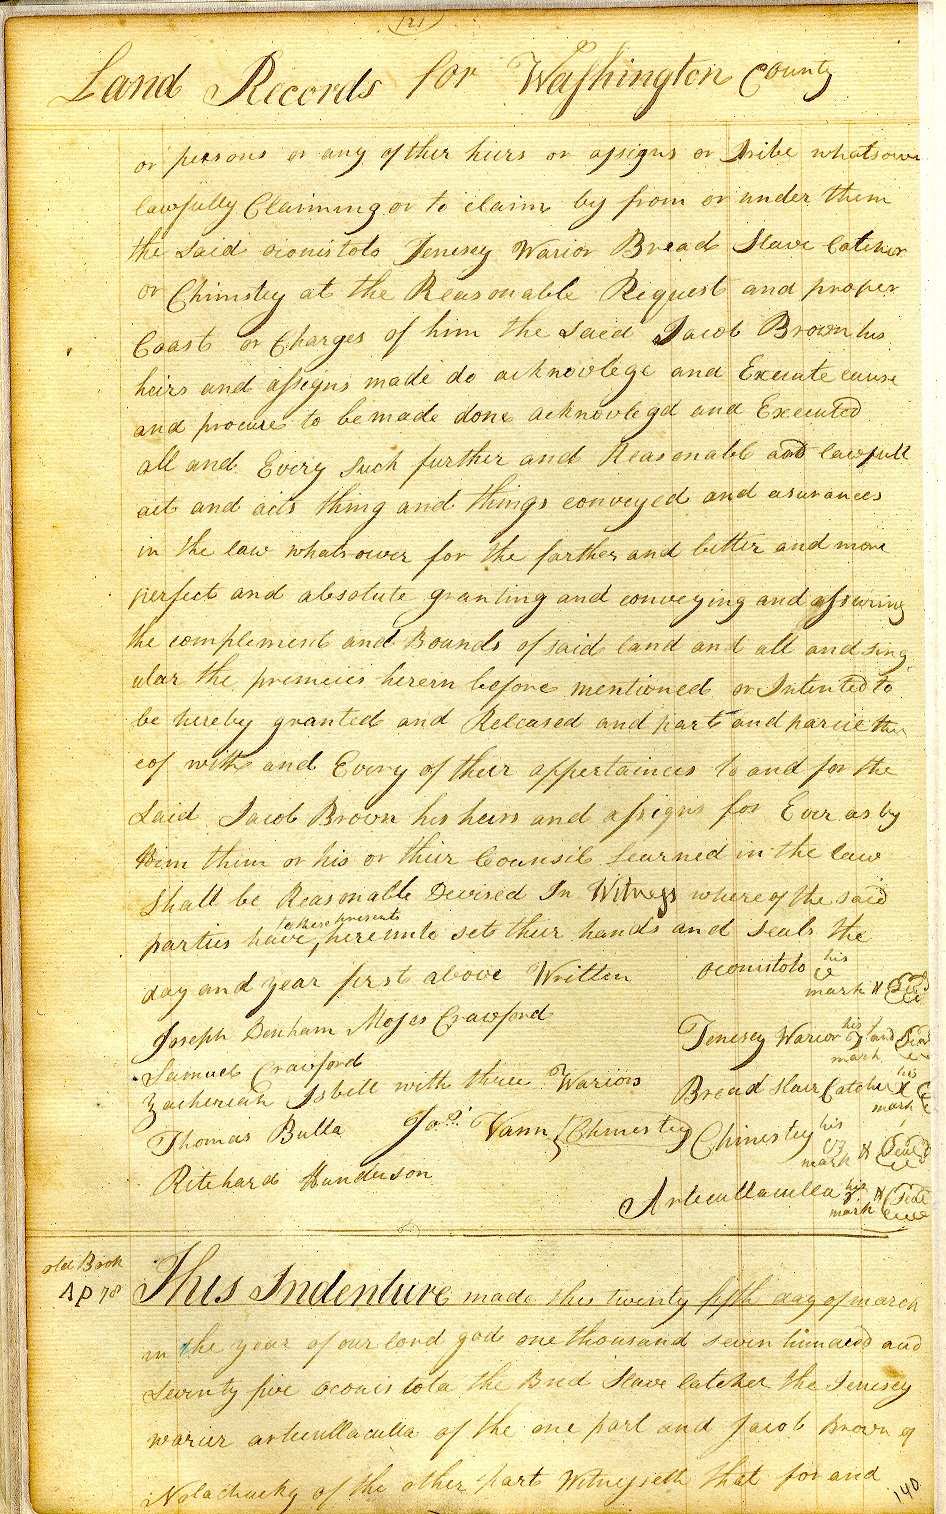 121
Land Records for Washington County
or persons or any of ther heirs or assigns or Tribe whatsover
lawfully Claiming or to claim by from or under them
the said oconistoto Tenesey Warior Bread Slave Catcher
or Chinistey at the Reasonable Request and proper
Coast or Charges of him the said Jacob Brown his
heirs and assigns made do acknowlege and Execute cause
and procure to be made done acknowlegd and Executed
all and Every such further and Reasonable and lawfull
act and acts thing and things conveyed and asurances
in the law whatsower for the farther and better and more
perfect and absolute granting and conveying and assuring
the complement and Bounds of said land and all and sing
ular the premeices herern before mentioned or Intented to
be hereby granted and Released and part and parcie ther
eof with and Every of their appertainces to and for the
said Jacob Brown his heirs and assigns for Ever as by
Him them or his or their Counsil Learned in the law
Shall be Reasonable Devised In Witness where of the said
to these presents
parties have hereunto sets their hands and seals the
day and year first above Written oconistoto his mark
Joseph Denham Moses Crawford
Tenesey Warior his hand mark
Samuel Crawford
Zacheriah Isbell with three Wariors Bread Slave Catcher his X mark
Thomas Bulla Jos. Vann Chinestey Chinestey his mark Seal
Ritchard Hunderson
Artecullaculla his mark Seal
old Book
A P 78
This Indenture made this twenty fifth day of march
in the year of our lord god one thousand seven hundred and
seventy five oconistota the Bred Slave catcher the Tenesey
warier artecullaculla of the one part and Jacob Brown of
Nolachucky of the other part Witnesseth that for and
140